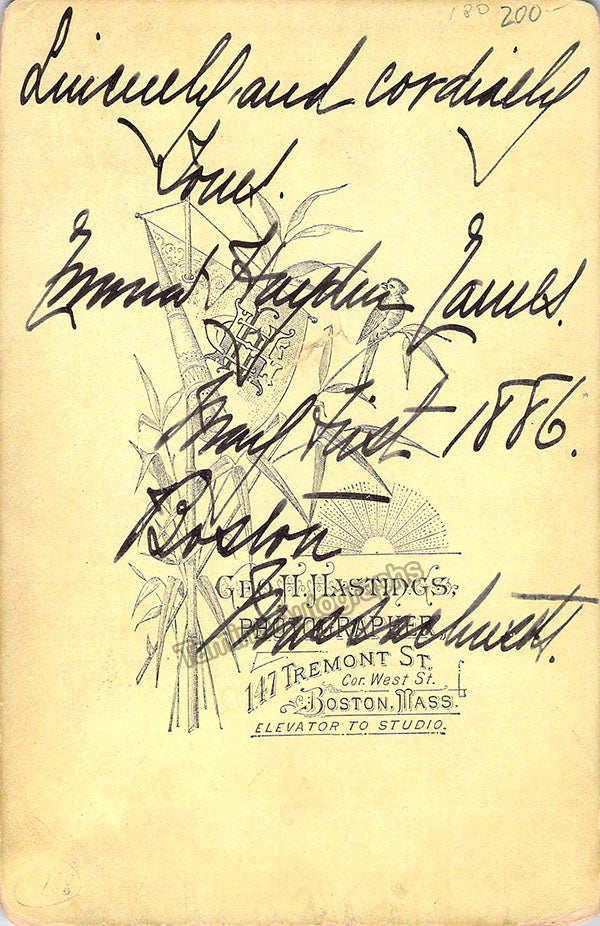 180 200-
Sincerely and cordially
Yours.
Emma Hayden Eames.
May First 1886.
Boston
Massachusetts.
GEO. H. HASTINGS.
PHOTOGRAPHER
147 TREMONT ST.
Cor. West St.
BOSTON, MASS.
ELEVATOR TO STUDIO.
Tamino Autographs